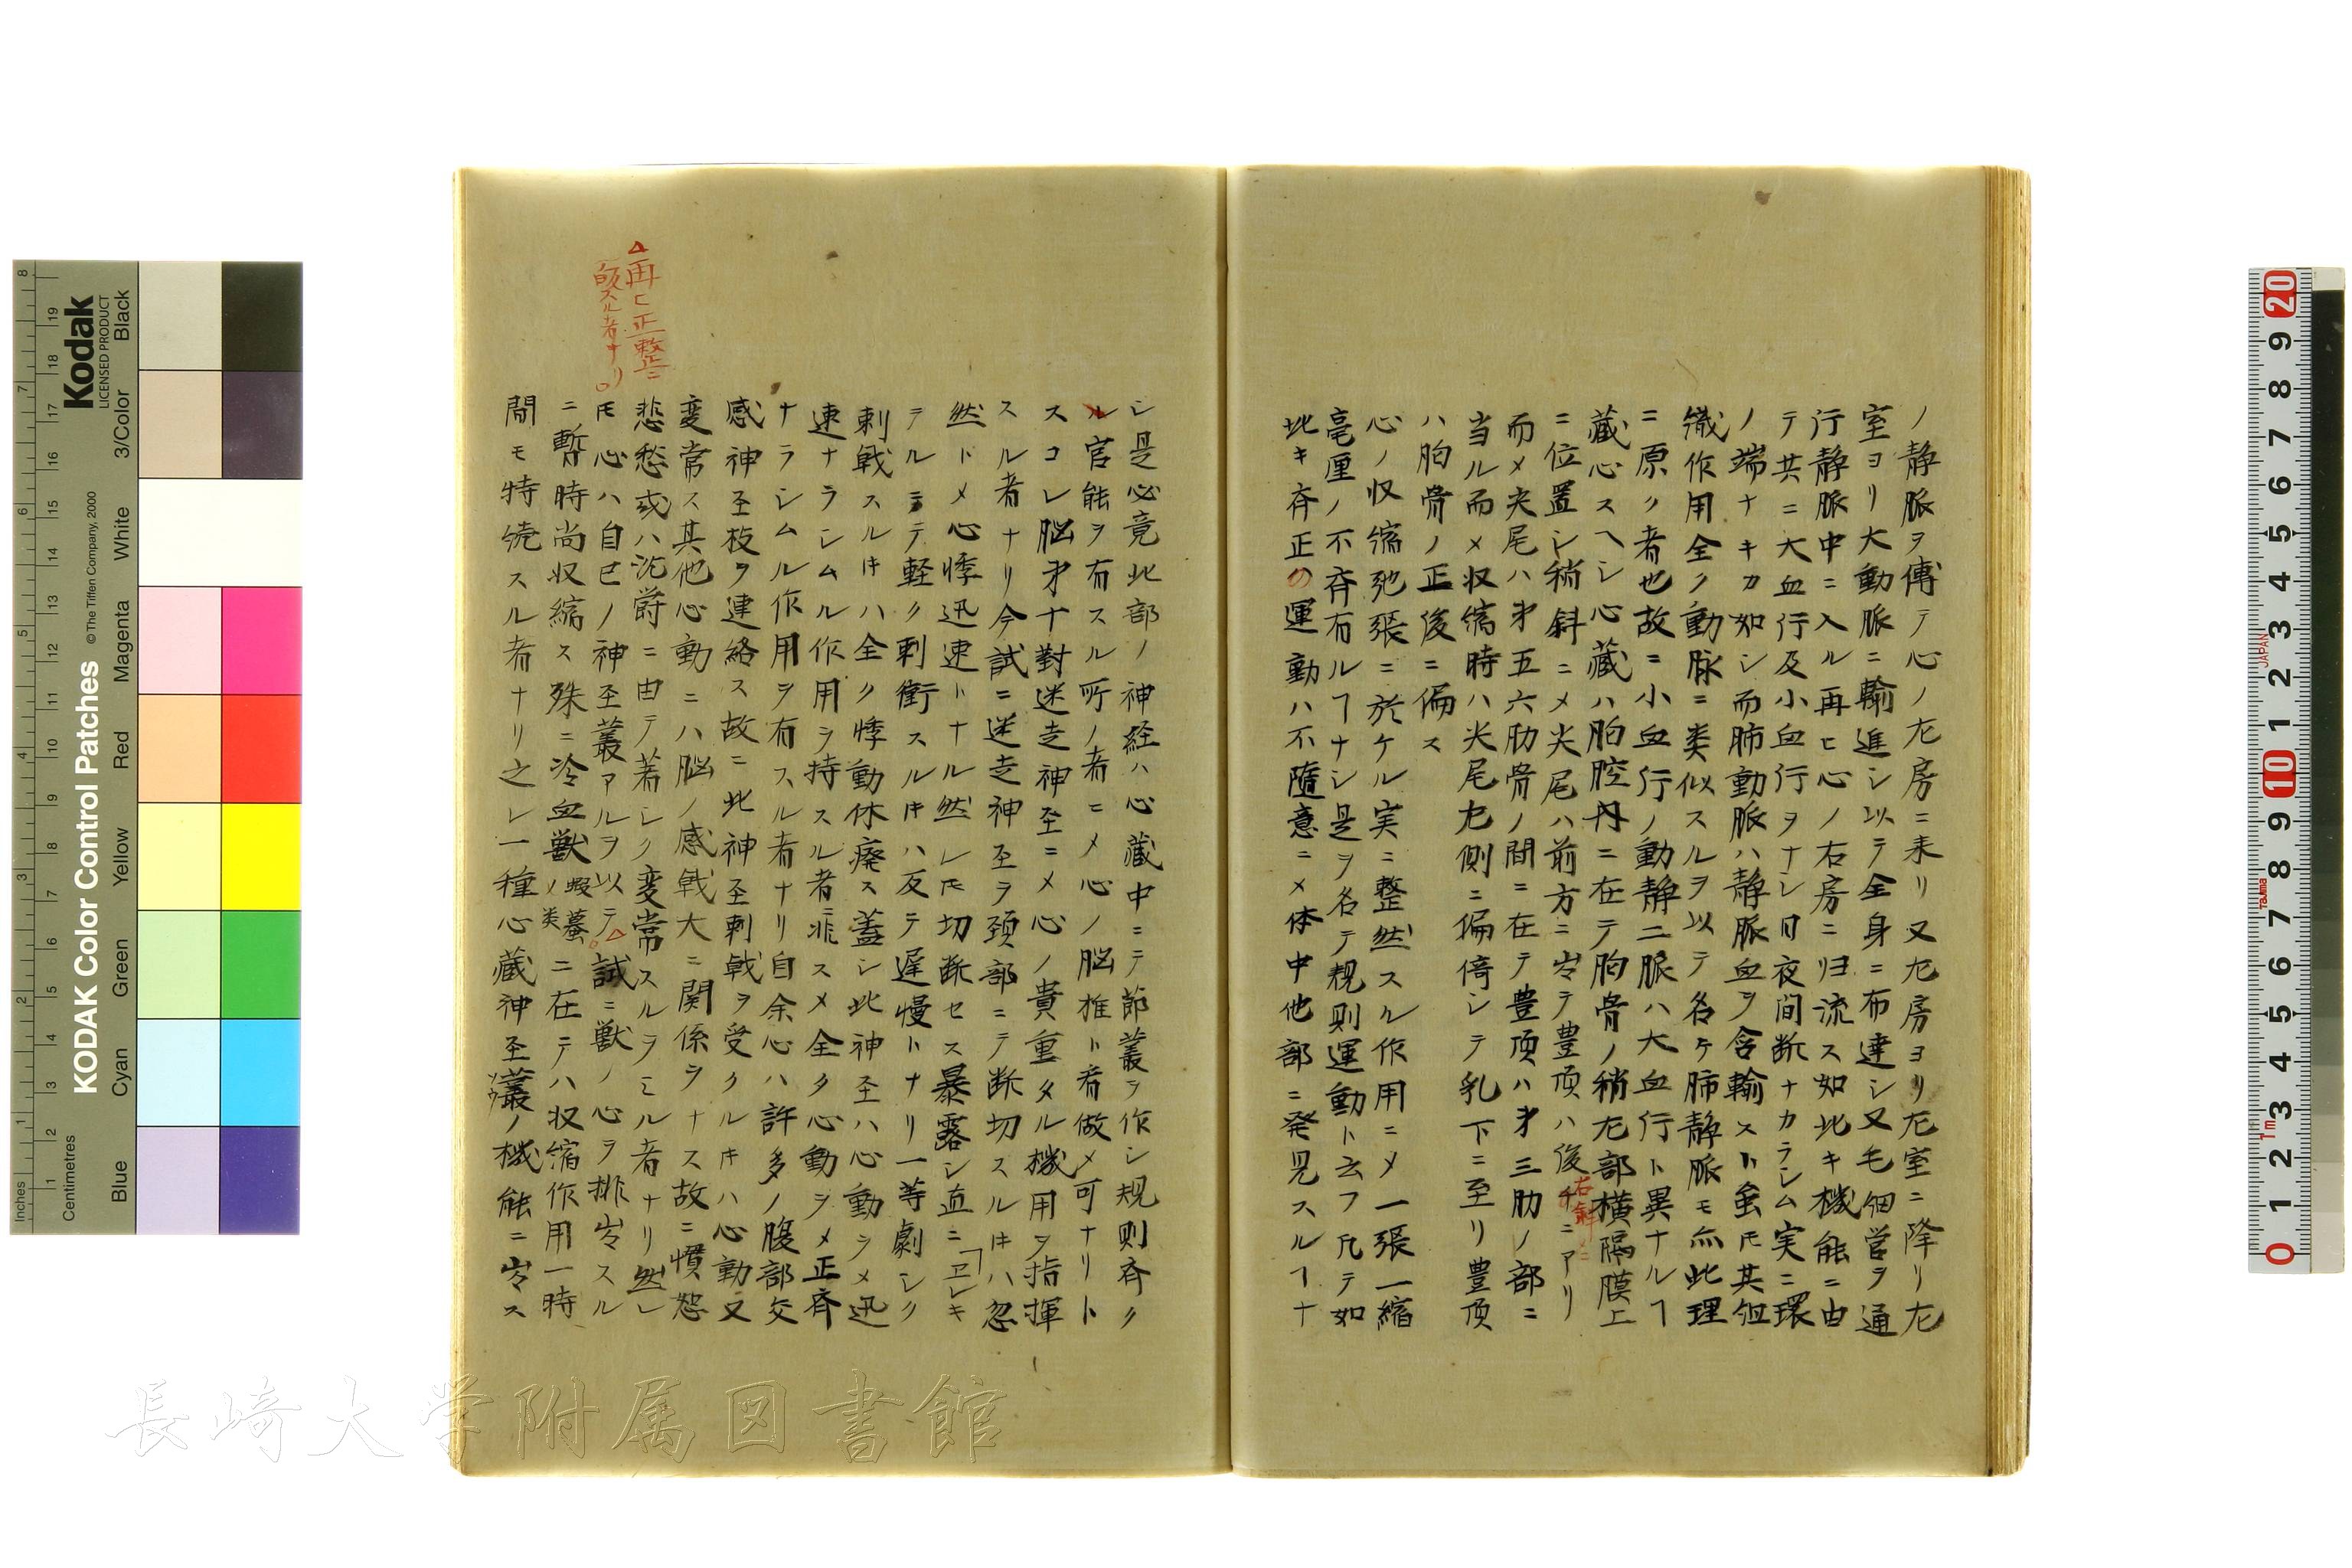 ノ静脈ヲ傳テ心ノ左房ニ来リ又左房ヨリ左室ニ降リ左
室ヨリ大動脈ニ輸進シ以テ全身ニ布達シ又毛細管ヲ通
行静脈中ニ入ル再ヒ心ノ右房ニ归流ス如此キ機能ニ由
テ共ニ大血行及小血行ヲナシ日夜間断ナカラシム実ニ環
ノ端ナキカ如シ而肺動脈ハ静脈血ヲ含輸スト虽モ其組
織作用全ク動脉ニ类似スルヲ以テ名ケ肺静脈モ亦此理
ニ原ク者也故ニ小血行ノ動静二脈ハ大血行ト異ナルヿ
蔵心スヘシ心蔵ハ胸腔内ニ在テ胸骨ノ稍左部横隔膜上
ニ位置シ稍斜ニメ尖尾ハ前方ニ岑テ豊頂ハ後
右斜ニ
ニアリ
而メ尖尾ハ㐧五六肋骨ノ間ニ在テ豊頂ハ㐧三肋ノ部ニ
当ル而メ収縮時ハ尖尾左側ニ偏倚シテ乳下ニ至リ豊頂
ハ胸骨ノ正後ニ偏ス
心ノ収縮弛張ニ於ケル実ニ整然スル作用ニメ一張一縮
毫厘ノ不斉有ルヿナシ是ヲ名テ規則運動ト云フ凡テ如
此キ斉正の運動ハ不隨意ニメ体中他部ニ発見スルヿナ
シ是必竟此部ノ神経ハ心蔵中ニテ節叢ヲ作シ規则斉ク
ル官能ヲ有スル所ノ者ニメ心ノ脳椎ト看做メ可ナリト
スコレ脳㐧十對迷走神至ニメ心ノ貴重タル機用ヲ指揮
スル者ナリ今試ニ迷走神至ヲ頚部ニテ断切スルキハ忽
然トメ心悸迅速トナル然レモ切断セス暴露シ直ニ「ヱレキ
テル」ニテ軽ク刺衝スルキハ反テ遅慢トナリ一等劇シク
刺戟スルキハ全ク悸動休廃ス蓋シ此神至ハ心動ヲメ迅
速ナラシムル作用ヲ持スル者ニ非スメ全タ心動ヲメ正斉
ナラシムル作用ヲ有スル者ナリ自余心ハ許多ノ腹部交
感神至枝ヲ連絡ス故ニ此神至刺戟ヲ受クルキハ心動又
変常ス其他心動ニハ脳ノ感戟大ニ関係ヲナス故ニ憤怒
悲愁或ハ沈欝ニ由テ著シク変常スルヲミル者ナリ然レ
モ心ハ自己ノ神至叢アルヲ以テ△試ニ獣ノ心ヲ排岑スル
△再ヒ正整ニ
皈スル者ナリ○
ニ暫時尚収縮ス殊ニ冷血獣蝦蟇ノ类ニ在テハ収縮作用一時
間モ特続スル者ナリ之レ一種心蔵神至叢ノ機能ニ岑ス
ソウ
KODAK Color Control Patches
© The Tiffen Company, 2000
Kodak
LICENSED PRODUCT
Inches
Centimetres
Blue
Cyan
Green
Yellow
Red
Magenta
White
3/Color
Black
JAPAN
Tajima
長崎大学附属図書館